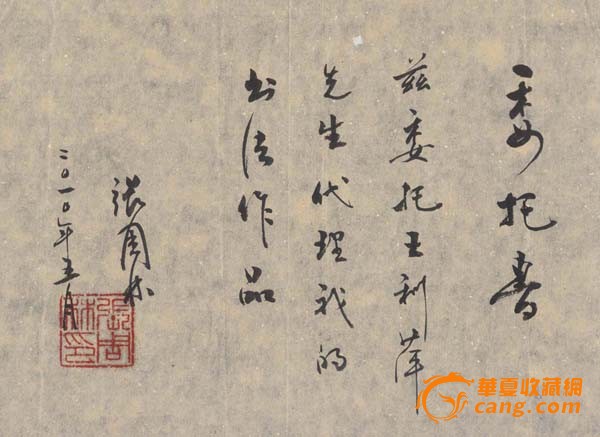 委托书
兹委托王利萍
先生代理我的
书法作品
张周林
二〇一〇年五月
張周林印
華夏收藏網
cang.com